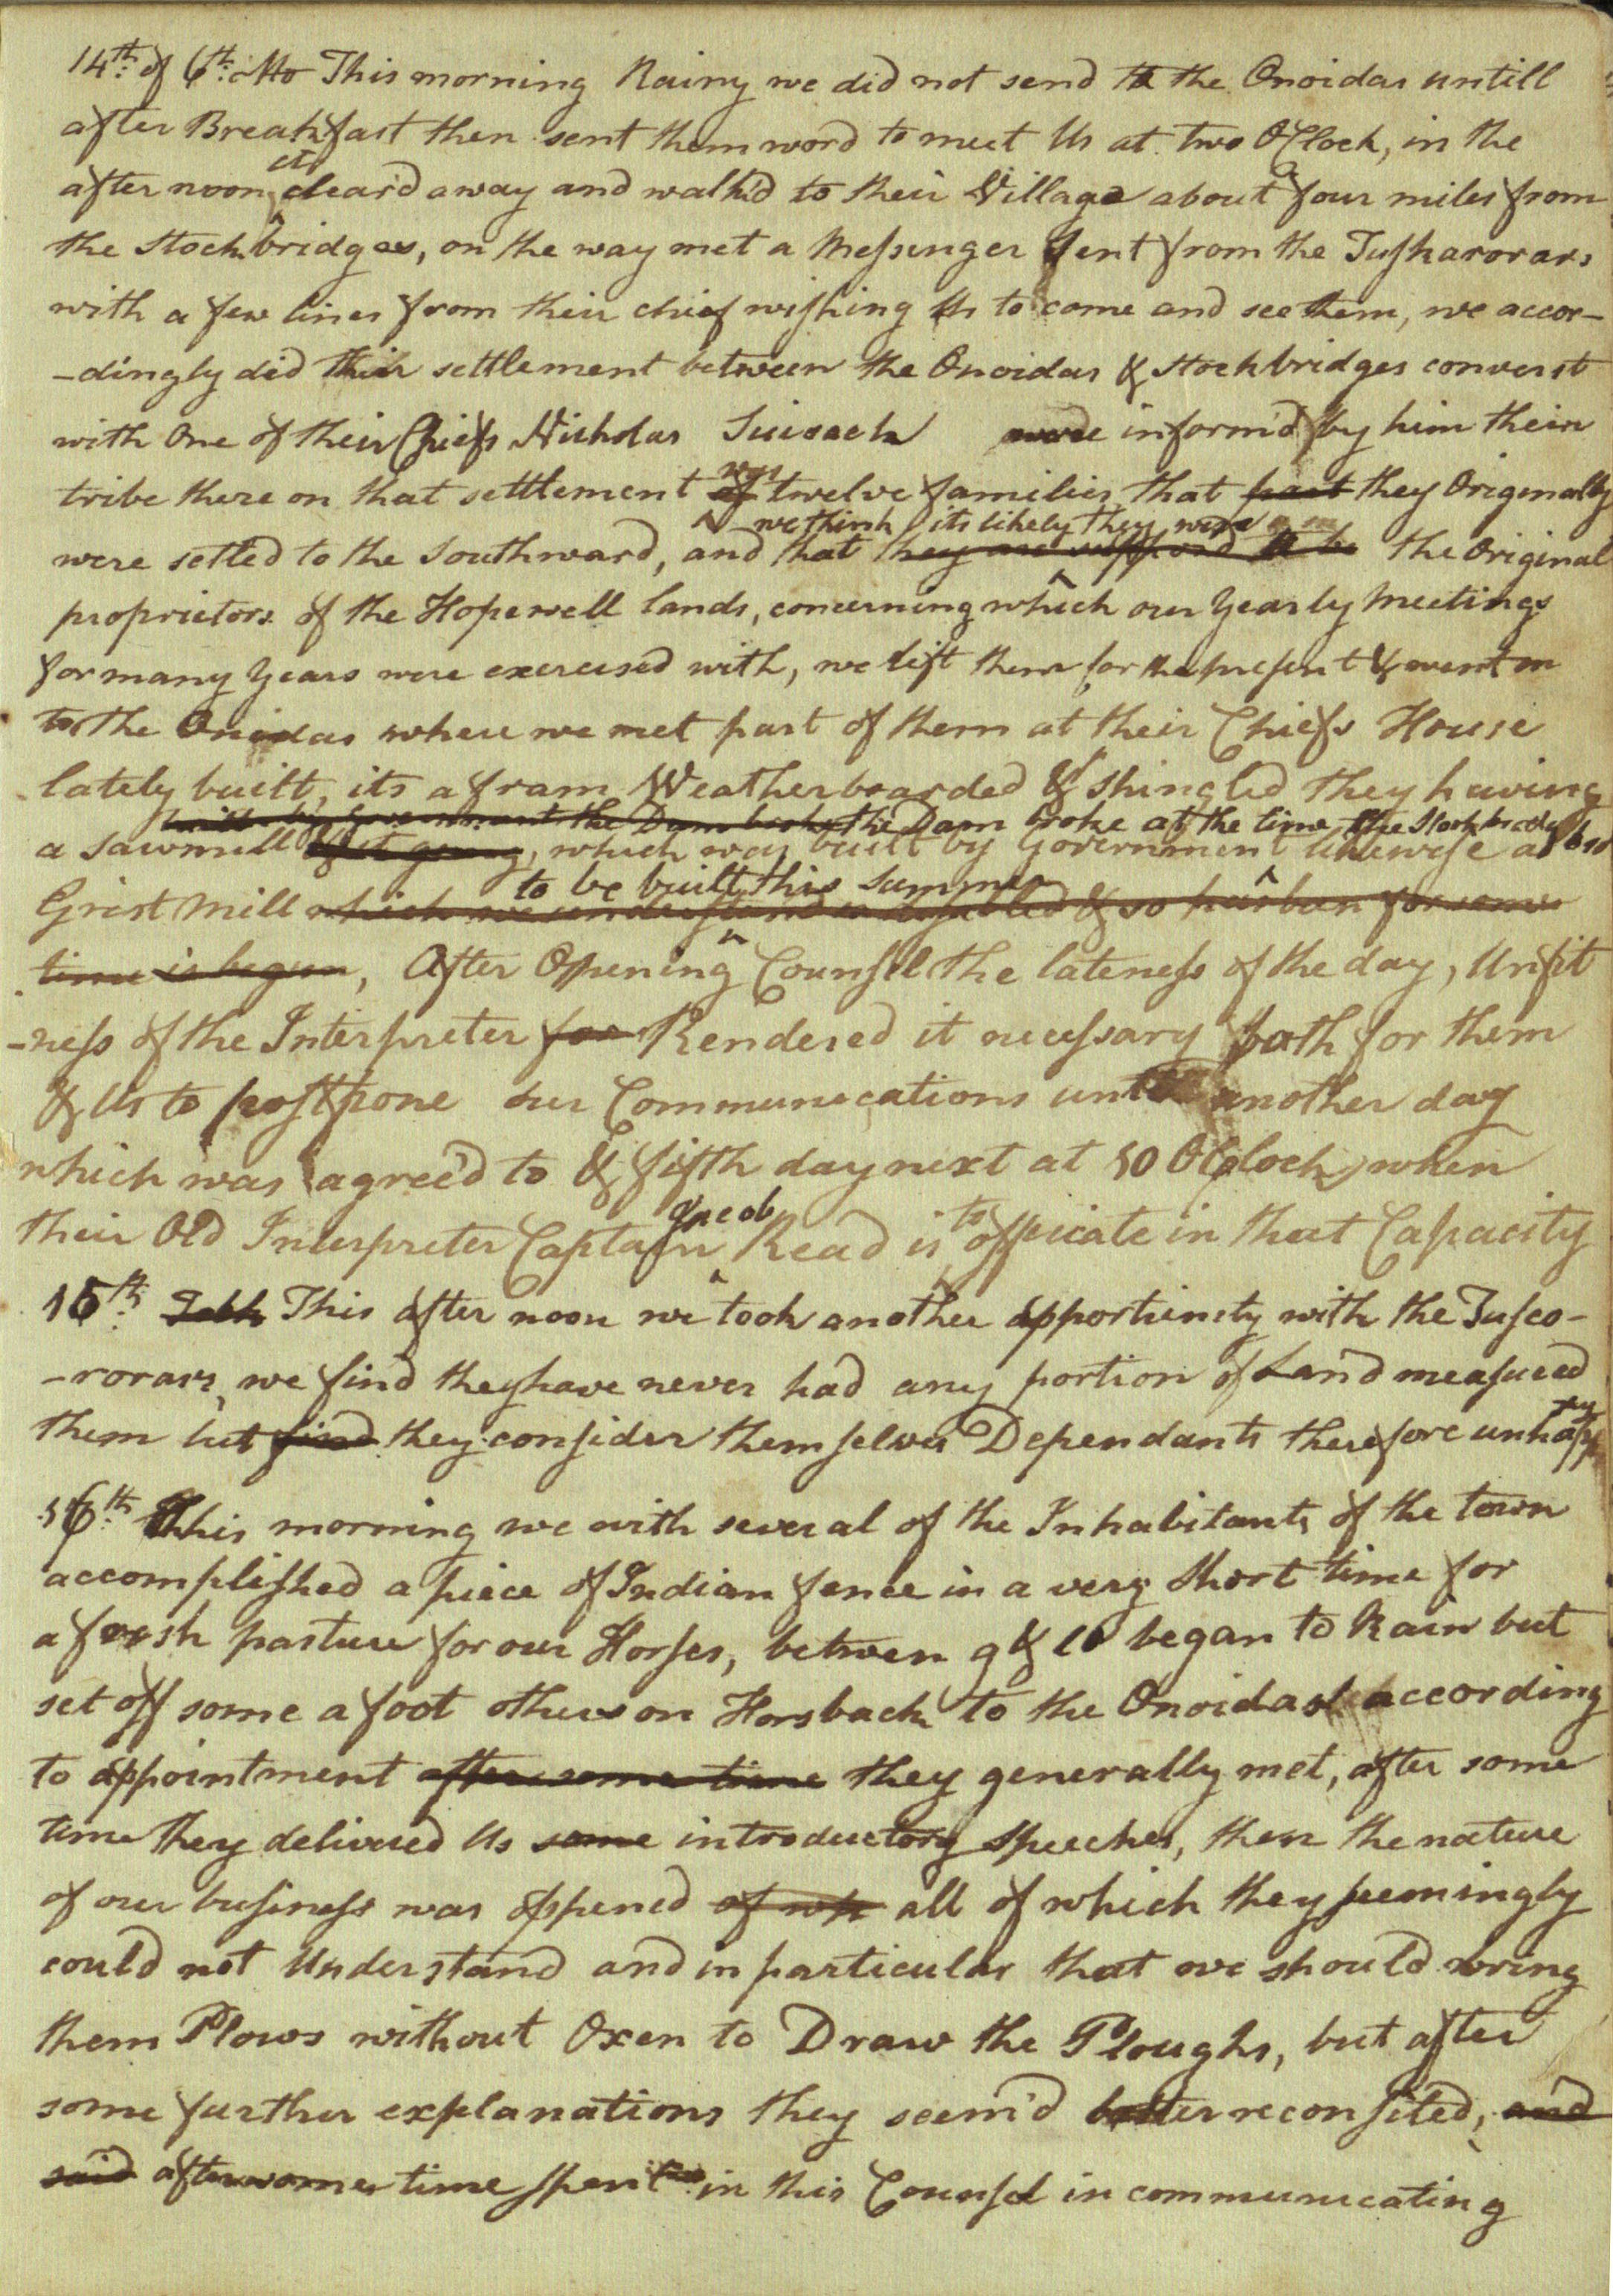 14th: of 6th: Mo This morning Rainy we did not send to the Onoidas untill
after Breakfast then sent them word to meet Us at two OClock, in the
it
after noon cleard away and walk'd to their Village about four miles from
the Stockbridges, on the way met a Messenger sent from the Tuskarorars
with a few lines from their chief wishing Us to come and see them, we accor-
-dingly did their settlement between the Onoidas & Stockbridges converst
with One of their Chiefs Nicholas were inform'd by him their
was
tribe there on that settlement of twelve families, that part they Originally
we think its likely they were
were setled to the Southward, and that they are suppos'd to be the Original
proprietors of the Hopewell lands, concerning which our Yearly Meetings
for many Years were exercised with, we left them for the present & went on
to the Onoidas where we met part of them at their Chiefs House
lately built, its a fram Weatherboarded & shingled they having
built by Government the Dam broke the Dam broke at the time the Stockbridge
a Sawmill, which was built by Government likewise a
to be built this Summer
Grist Mill which we understand is & so has been for some
time is begun, After Opening Counsel the lateness of the day, Unfit
-ness of the Interpreter for Rendered it necessary both for them
& Us to postpone our Communications until another day
which was agree'd to & fifth day next at 10 OClock, when
Jacob to
their Old Interpreter Captain Read is officate in that Capacity
15th: This after noon we took another opportunity with the Tusco-
-rorars, we find they have never had any portion of Land measured
them but find they consider themselves Dependants therefore unhappy
16th: This morning we with several of the Inhabitants of the town
accomplished a piece of Indian fence in a very short time for
a fresh pasture for our Horses, between 9 & 10 began to Rain but
set off some a foot others on Horsback to the Onoidas according
to appointment after some time they generally met, after some
time they delivered Us some introductory speeches, then the nature
of our business was oppened of wh all of which they seemingly
could not Understand and in particular that we should bring
them Plows without Oxen to Draw the Ploughs, but after
some further explanations they seem'd better reconsiled, and
said after some time spent in this Counsel in communicating